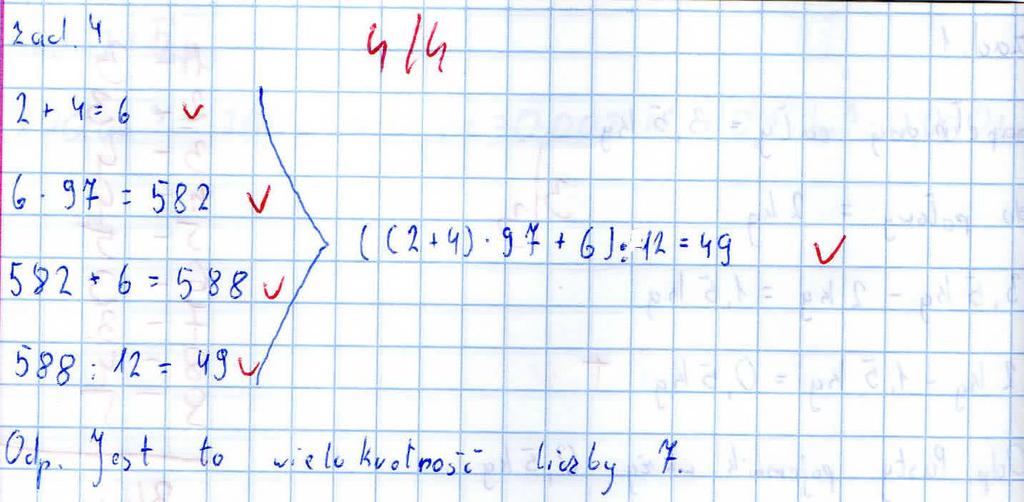 zad. 4
4/4
2 + 4 = 6
6 · 97 = 582
((2+4) · 97 + 6) : 12 = 49
582 + 6 = 588
588 : 12 = 49
Odp. Jest to wielokrotność liczby 7.